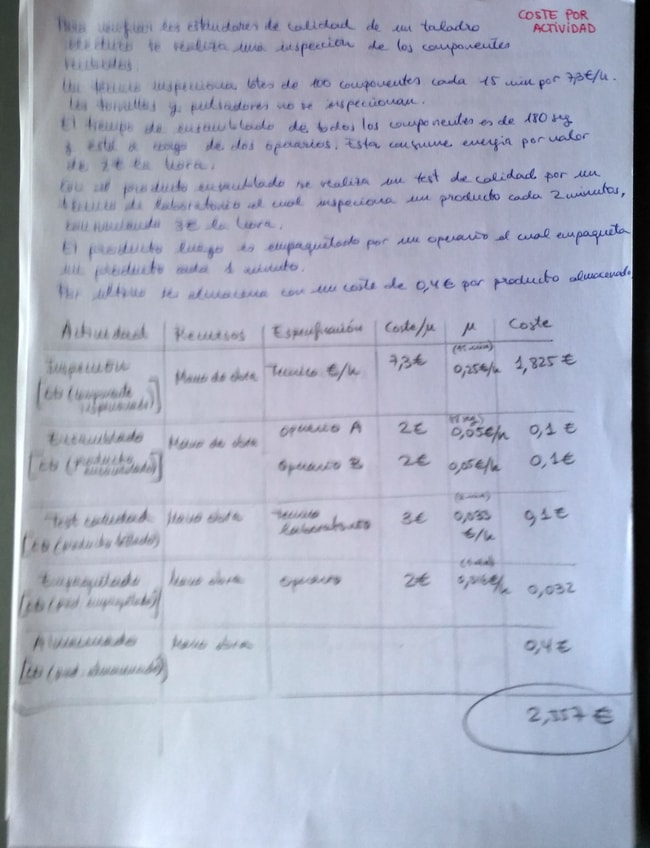 COSTE POR
ACTIVIDAD
Para verificar los estándares de calidad de un taladro
se realiza una inspección de los componentes
recibidos.
Un técnico inspecciona lotes de 100 componentes cada 15 min por 7,3€/h.
Los tornillos y pulsadores no se inspeccionan.
El tiempo de ensamblado de todos los componentes es de 180 seg
y está a cargo de dos operarios. Estos consume energía por valor
de 2€ la hora.
Con el producto ensamblado se realiza un test de calidad por un
técnico de laboratorio el cual inspecciona un producto cada 2 minutos,
3€ la hora.
El producto luego es empaquetado por un operario el cual empaqueta
un producto cada 1 minuto.
Por último se almacena con un coste de 0,4€ por producto almacenado
Actividad | Recursos | Especificación | Coste/h | h | Coste
Inspección | Mano de obra | Técnico €/h | 7,3€ | (15 min) 0,25€/h | 1,825 €
Ensamblado | Mano de obra | Operario A | 2€ | 0,05€/h | 0,1 €
Operario B | 2€ | 0,05€/h | 0,1€
Test calidad | Mano obra | Técnico laboratorio | 3€ | 0,033 €/h | 0,1€
Empaquetado | Mano obra | Operario | 2€ | 0,016€/h | 0,032
Almacenado | Mano obra | 0,4€
2,557 €